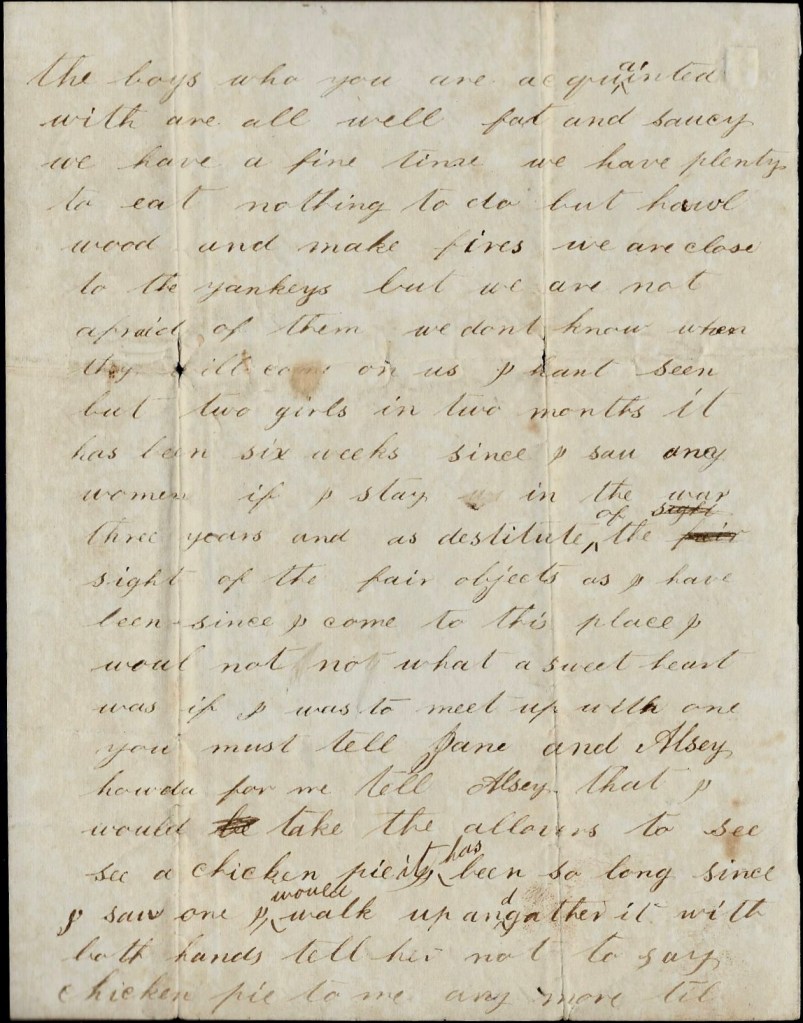 the boys who you are acquainted
with are all well fat and saucy
we have a fine time we have plenty
to eat nothing to do but hawl
wood and make fires we are close
to the yankeys but we are not
afraid of them we dont know when
they will come on us I hant seen
but two girls in two months it
has been six weeks since I saw any
women if I stay in the war
three years and as destitute of the sight fair
sight of the fair objects as I have
been since I come to this place I
woul not not what a sweet heart
was if I was to meet up with one
you must tell Jane and Alsey
howda for me tell Alsey that I
would take the allovers to see
see a chicken pie it has been so long since
I saw one I would walk up and gather it with
both hands tell her not to say
chicken pie to me any more til